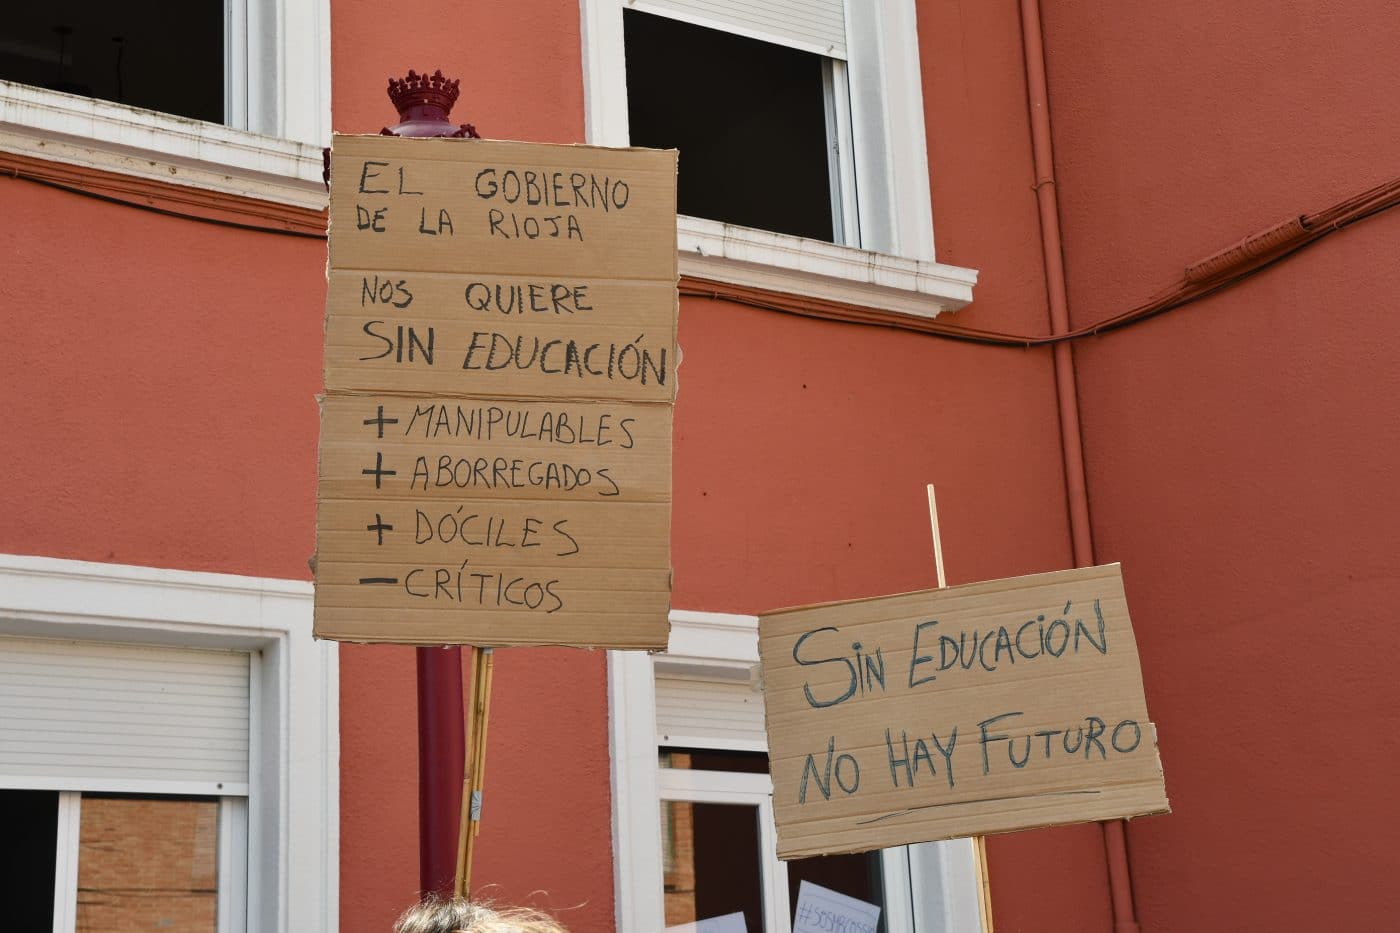 EL GOBIERNO
DE LA RIOJA
NOS QUIERE
SIN EDUCACIÓN
+ MANIPULABLES
+ ABORREGADOS
+ DÓCILES
- CRÍTICOS
SIN EDUCACIÓN
NO HAY FUTURO